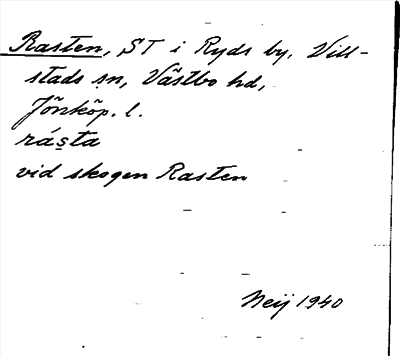 Rasten, ST i Ryds by, Vill-
stads sn, Västbo hd,
Jönköp. l.
rásta
vid skogen Rasten
Neij 1940